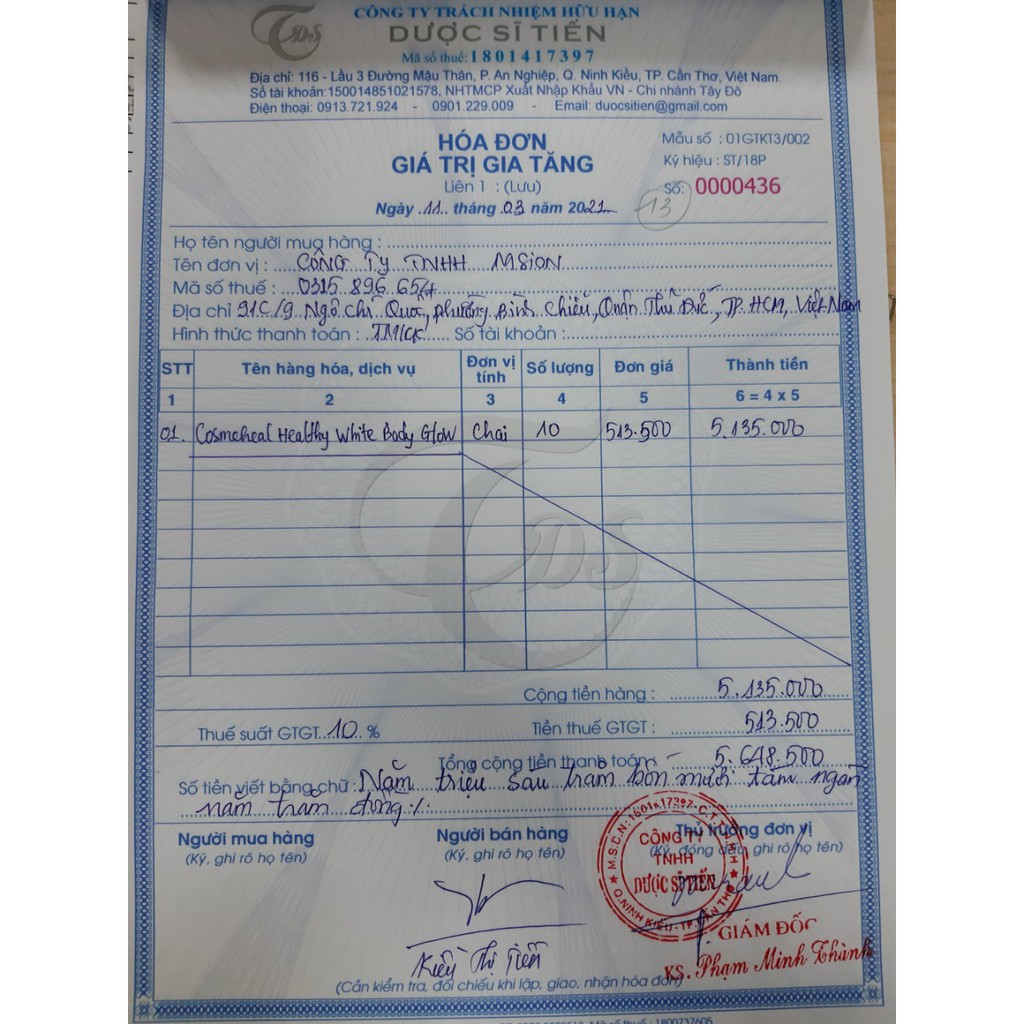 CÔNG TY TRÁCH NHIỆM HỮU HẠN
TDS DƯỢC SĨ TIẾN
Mã số thuế: 1801417397
Địa chỉ: 116 - Lầu 3 Đường Mậu Thân, P. An Nghiệp, Q. Ninh Kiều, TP. Cần Thơ, Việt Nam.
Số tài khoản: 150014851021578, NHTMCP Xuất Nhập Khẩu VN - Chi nhánh Tây Đô
Điện thoại: 0913.721.924 - 0901.229.009 - Email: duocsitien@gmail.com
HÓA ĐƠN
GIÁ TRỊ GIA TĂNG
Liên 1 : (Lưu)
Ngày 11 tháng 03 năm 2021
Mẫu số : 01GTKT3/002
Ký hiệu : ST/18P
Số: 0000436
13
Họ tên người mua hàng :
Tên đơn vị : CÔNG TY TNHH MSION
Mã số thuế : 0315 896 657
Địa chỉ 91C/9 Ngô Chí Quốc, phường Bình Chiểu, Quận Thủ Đức, TP. HCM, Việt Nam
Hình thức thanh toán : TM/CK Số tài khoản :
STT Tên hàng hóa, dịch vụ Đơn vị tính Số lượng Đơn giá Thành tiền
1 2 3 4 5 6 = 4 x 5
01. Cosmeheal Healthy White Body Glow Chai 10 513.500 5.135.000
Cộng tiền hàng : 5.135.000
Thuế suất GTGT 10 % Tiền thuế GTGT : 513.500
Tổng cộng tiền thanh toán : 5.648.500
Số tiền viết bằng chữ : Năm triệu sáu trăm bốn mươi tám ngàn
năm trăm đồng ./.
Người mua hàng Người bán hàng Thủ trưởng đơn vị
(Ký, ghi rõ họ tên) (Ký, ghi rõ họ tên) (Ký, đóng dấu, ghi rõ họ tên)
M.S.C.N: 1801417397-C.T.TNHH
CÔNG TY
TNHH
DƯỢC SĨ TIẾN
Q.NINH KIỀU-TP.CẦN THƠ
GIÁM ĐỐC
KS. Phạm Minh Thành
Kiều Thị Tiến
(Cần kiểm tra, đối chiếu khi lập, giao, nhận hóa đơn)
Mã số thuế : 1800737605